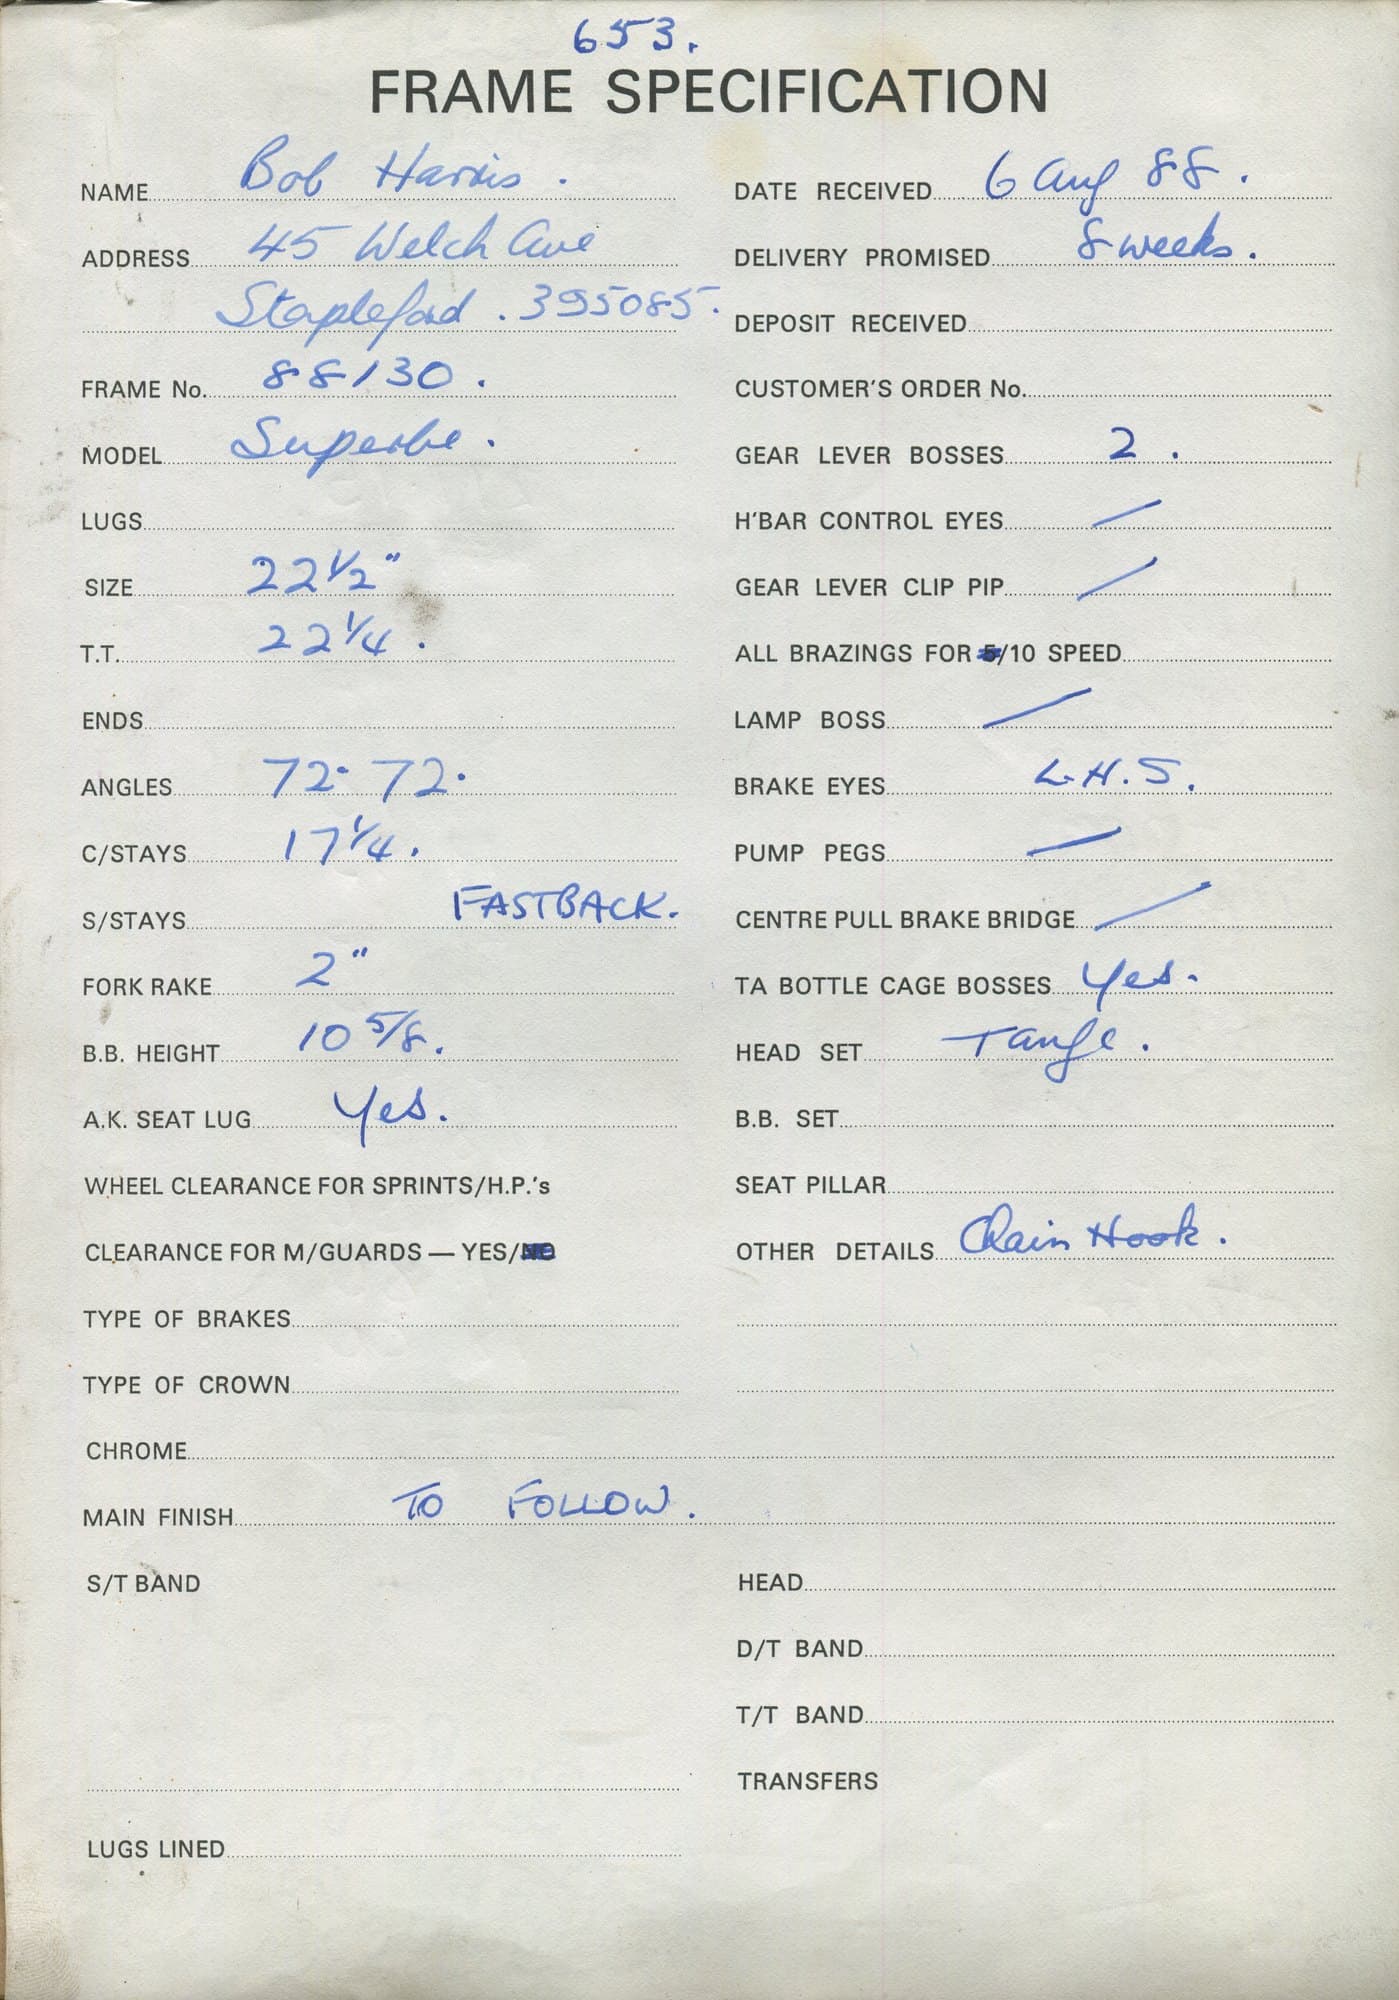 653.
FRAME SPECIFICATION
NAME Bob Harris.
ADDRESS 45 Welch Ave
Stapleford. 395085.
FRAME No. 88130.
MODEL Superbe.
LUGS
SIZE 22 1/2"
T.T. 22 1/4.
ENDS
ANGLES 72° 72°
C/STAYS 17 1/4.
S/STAYS FASTBACK.
FORK RAKE 2"
B.B. HEIGHT 10 5/8.
A.K. SEAT LUG Yes.
WHEEL CLEARANCE FOR SPRINTS/H.P.'s
CLEARANCE FOR M/GUARDS — YES/NO
TYPE OF BRAKES
TYPE OF CROWN
DATE RECEIVED 6 Aug 88.
DELIVERY PROMISED 8 weeks.
DEPOSIT RECEIVED
CUSTOMER'S ORDER No.
GEAR LEVER BOSSES 2.
H'BAR CONTROL EYES /
GEAR LEVER CLIP PIP /
ALL BRAZINGS FOR 5/10 SPEED
LAMP BOSS /
BRAKE EYES L.H.S.
PUMP PEGS /
CENTRE PULL BRAKE BRIDGE /
TA BOTTLE CAGE BOSSES Yes.
HEAD SET Tange.
B.B. SET
SEAT PILLAR
OTHER DETAILS Chain Hook.
CHROME
MAIN FINISH TO FOLLOW.
S/T BAND
LUGS LINED
HEAD
D/T BAND
T/T BAND
TRANSFERS